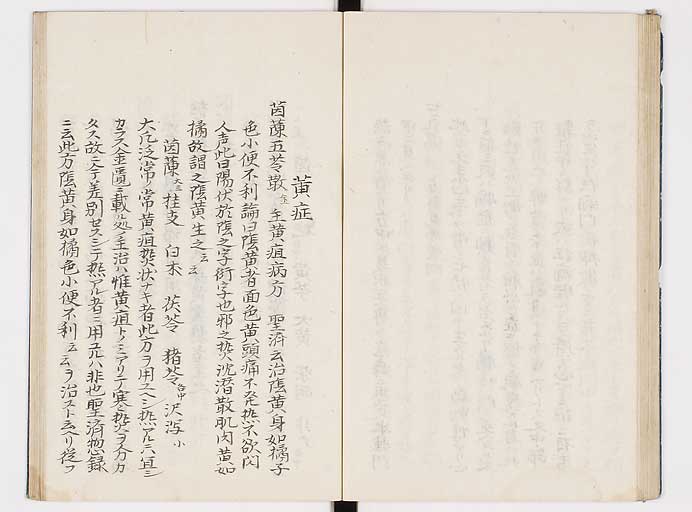 黄症
茵蔯五苓散 金 主黄疸病方 聖済云治陰黄身如橘子
色小便不利論曰陰黄者面色黄頭痛不発热不欲闻
人声此曰陽伏於陰之字衍字也邪之热沈潜散肌肉黄如
橘故謂之陰黄生之云云
茵蔯大 桂支 白朮 茯苓 猪苓各中 沢瀉小
大凡泛常ノ常黄疸热状ナキ者此方ヲ用ユヘシ热アルハ宜シ
カラス金匱ニ載ル処ノ主治ハ惟黄疸トノミアリテ寒ト热ヲ分カ
タス故ニ今差別セスシテ热アル者ニ用ユルハ非也聖済惣録
ニ云此方陰黄身如橘色小便不利云云ヲ治スト云ヘリ従フ